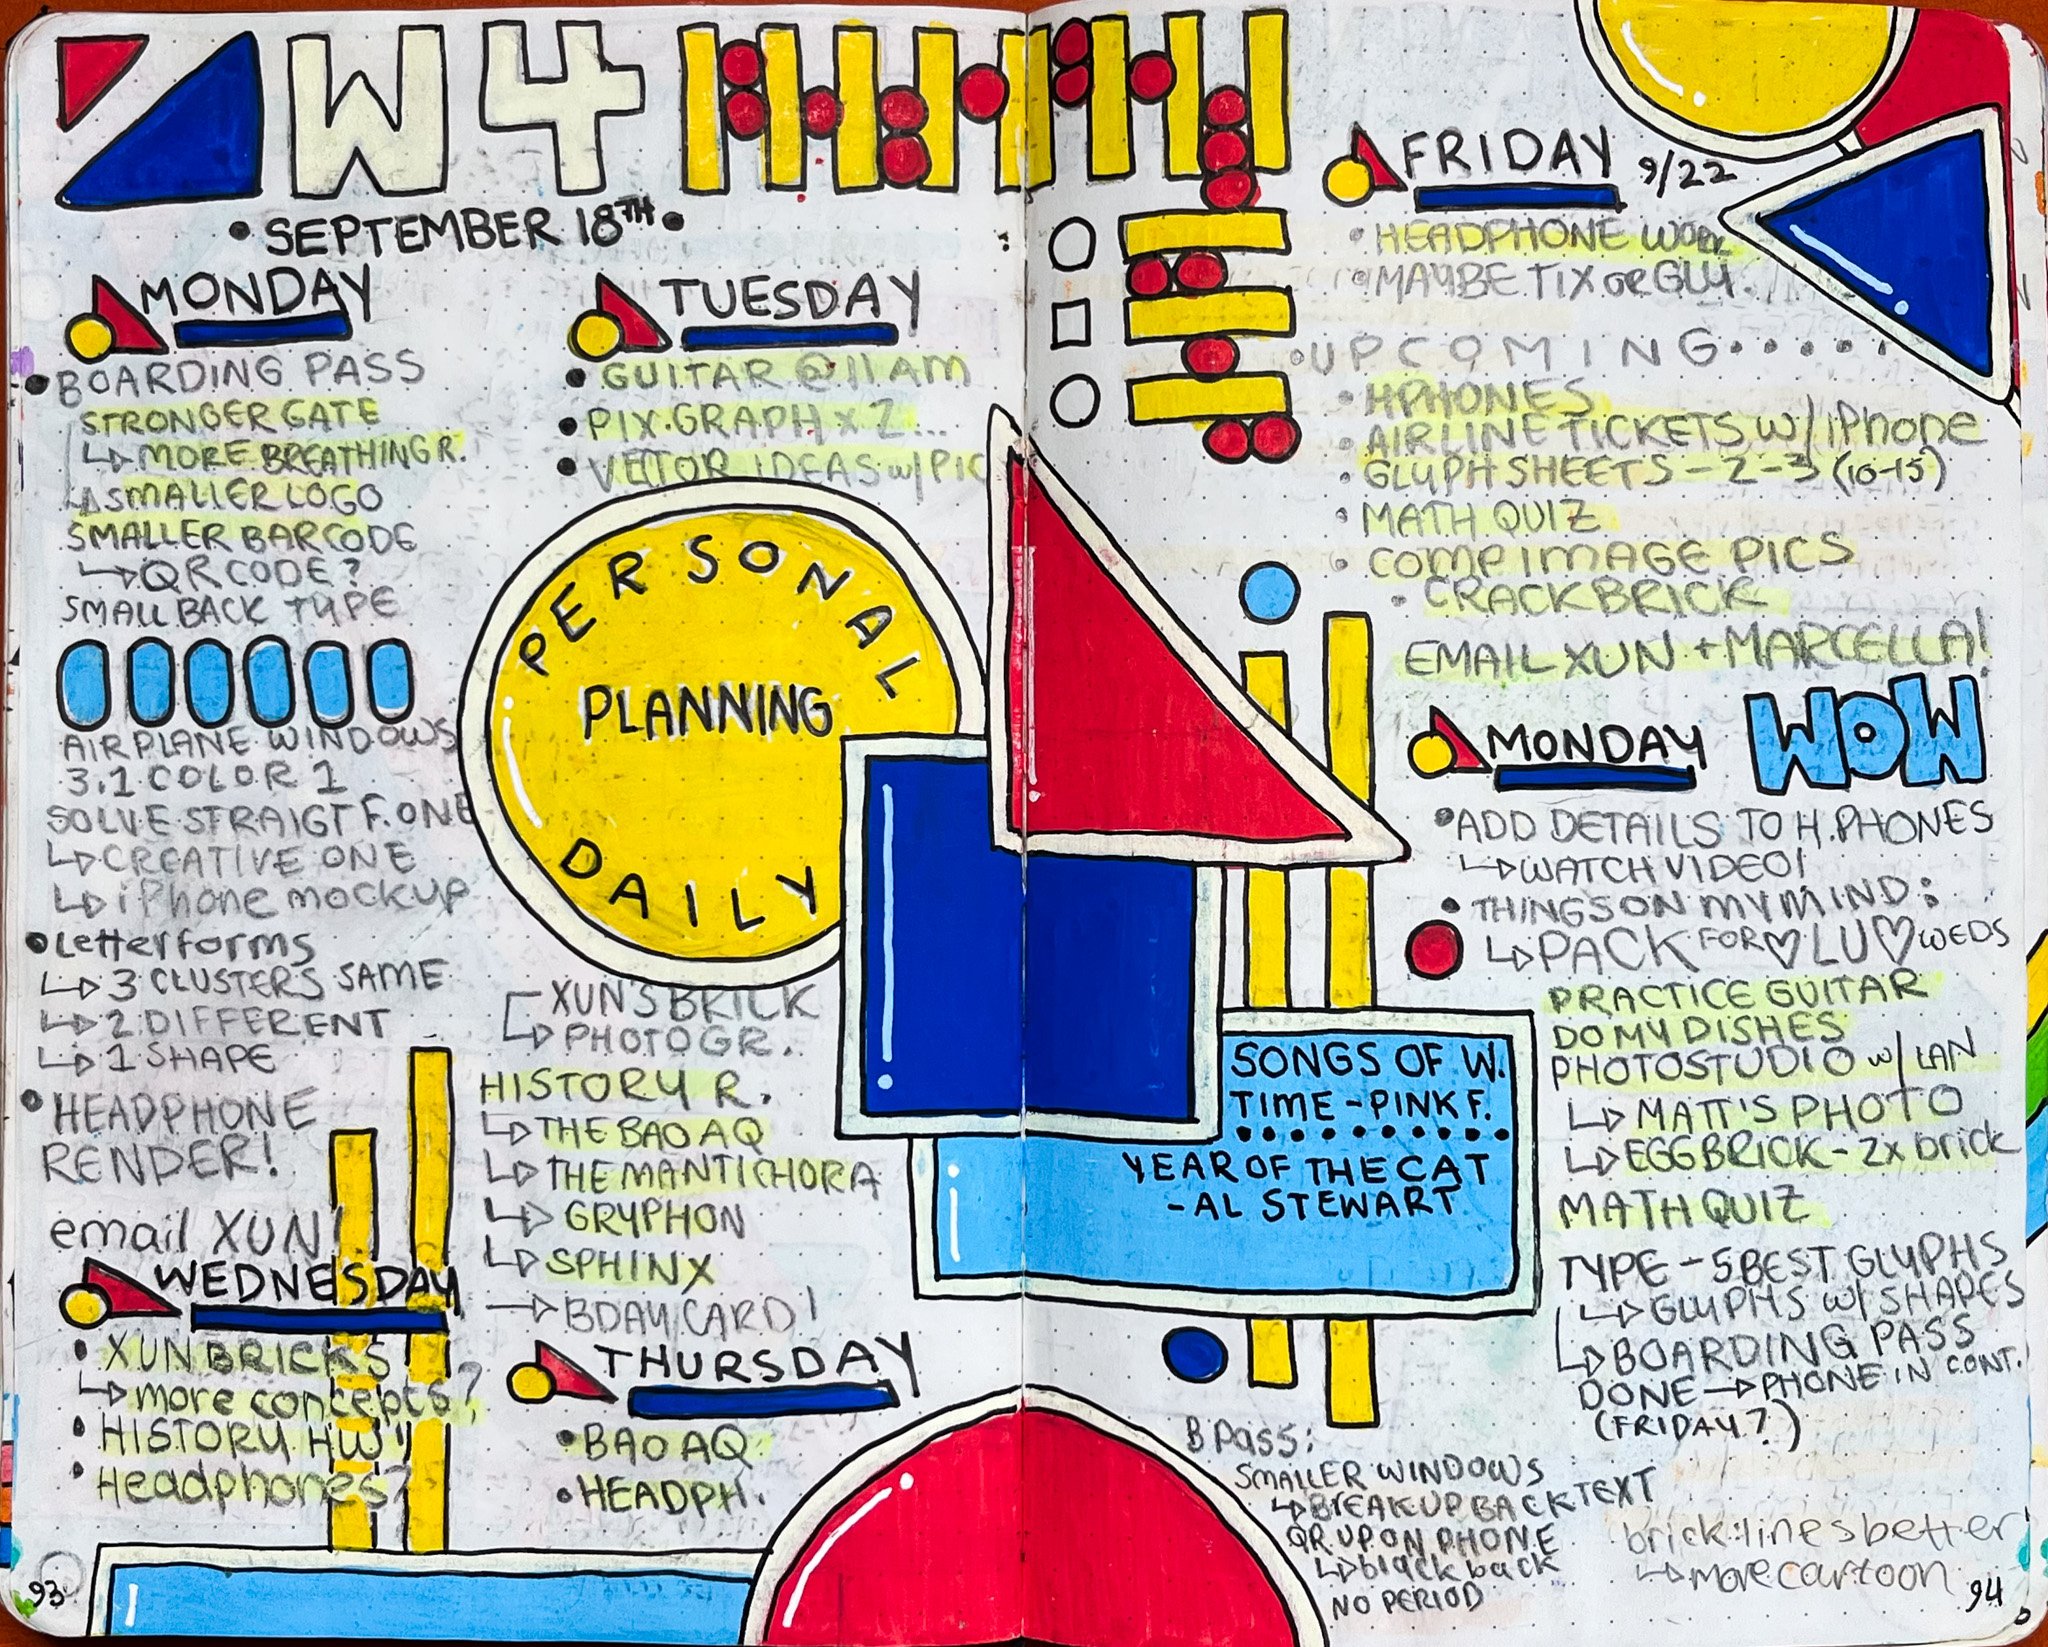 W4
• SEPTEMBER 18TH •
MONDAY
• BOARDING PASS
STRONGER GATE
↳ MORE BREATHING R.
↳ SMALLER LOGO
SMALLER BARCODE
↳ QR CODE?
SMALL BACK TYPE
AIRPLANE WINDOWS
3.1 COLOR 1
SOLVE STRAIGT F. ONE
↳ CREATIVE ONE
↳ iPhone mockup
• Letterforms
↳ 3 CLUSTERS SAME
↳ 2 DIFFERENT
↳ 1 SHAPE
• HEADPHONE
RENDER!
email XUN!
TUESDAY
• GUITAR @ 11 AM
• PIX. GRAPH x 2...
• VECTOR IDEAS w/ PIC
PERSONAL
PLANNING
DAILY
WEDNESDAY
• XUN BRICKS
↳ more concepts?
• HISTORY HW!
• Headphones?
XUN'S BRICK
↳ PHOTOGR.
HISTORY R.
↳ THE BAO AQ
↳ THE MANTICHORA
↳ GRYPHON
↳ SPHINX
→ BDAY CARD!
THURSDAY
• BAO AQ
• HEADPH.
FRIDAY 9/22
• HEADPHONE WORK
• MAYBE TIX OR GLY.
UPCOMING.....
• HPHONES
• AIRLINE TICKETS w/ iPhone
• GLYPH SHEETS - 2-3 (10-15)
• MATH QUIZ
• COMP IMAGE PICS
• CRACK BRICK
EMAIL XUN + MARCELLA!
MONDAY WOW
• ADD DETAILS TO H.PHONES
↳ WATCH VIDEO!
• THINGS ON MY MIND:
↳ PACK FOR ♡ LU ♡ WEDS
PRACTICE GUITAR
DO MY DISHES
PHOTOSTUDIO w/ IAN
↳ MATT'S PHOTO
↳ EGG BRICK - 2x brick
MATH QUIZ
TYPE - 5 BEST GLYPHS
↳ GLYPHS w/ SHAPES
↳ BOARDING PASS
DONE → PHONE IN CONT.
(FRIDAY?)
SONGS OF W.
TIME - PINK F.
YEAR OF THE CAT
- AL STEWART
B Pass:
SMALLER WINDOWS
↳ BREAK UP BACK TEXT
QR UP ON PHONE
↳ black back
NO PERIOD
brick: lines better
↳ more cartoon
93
94